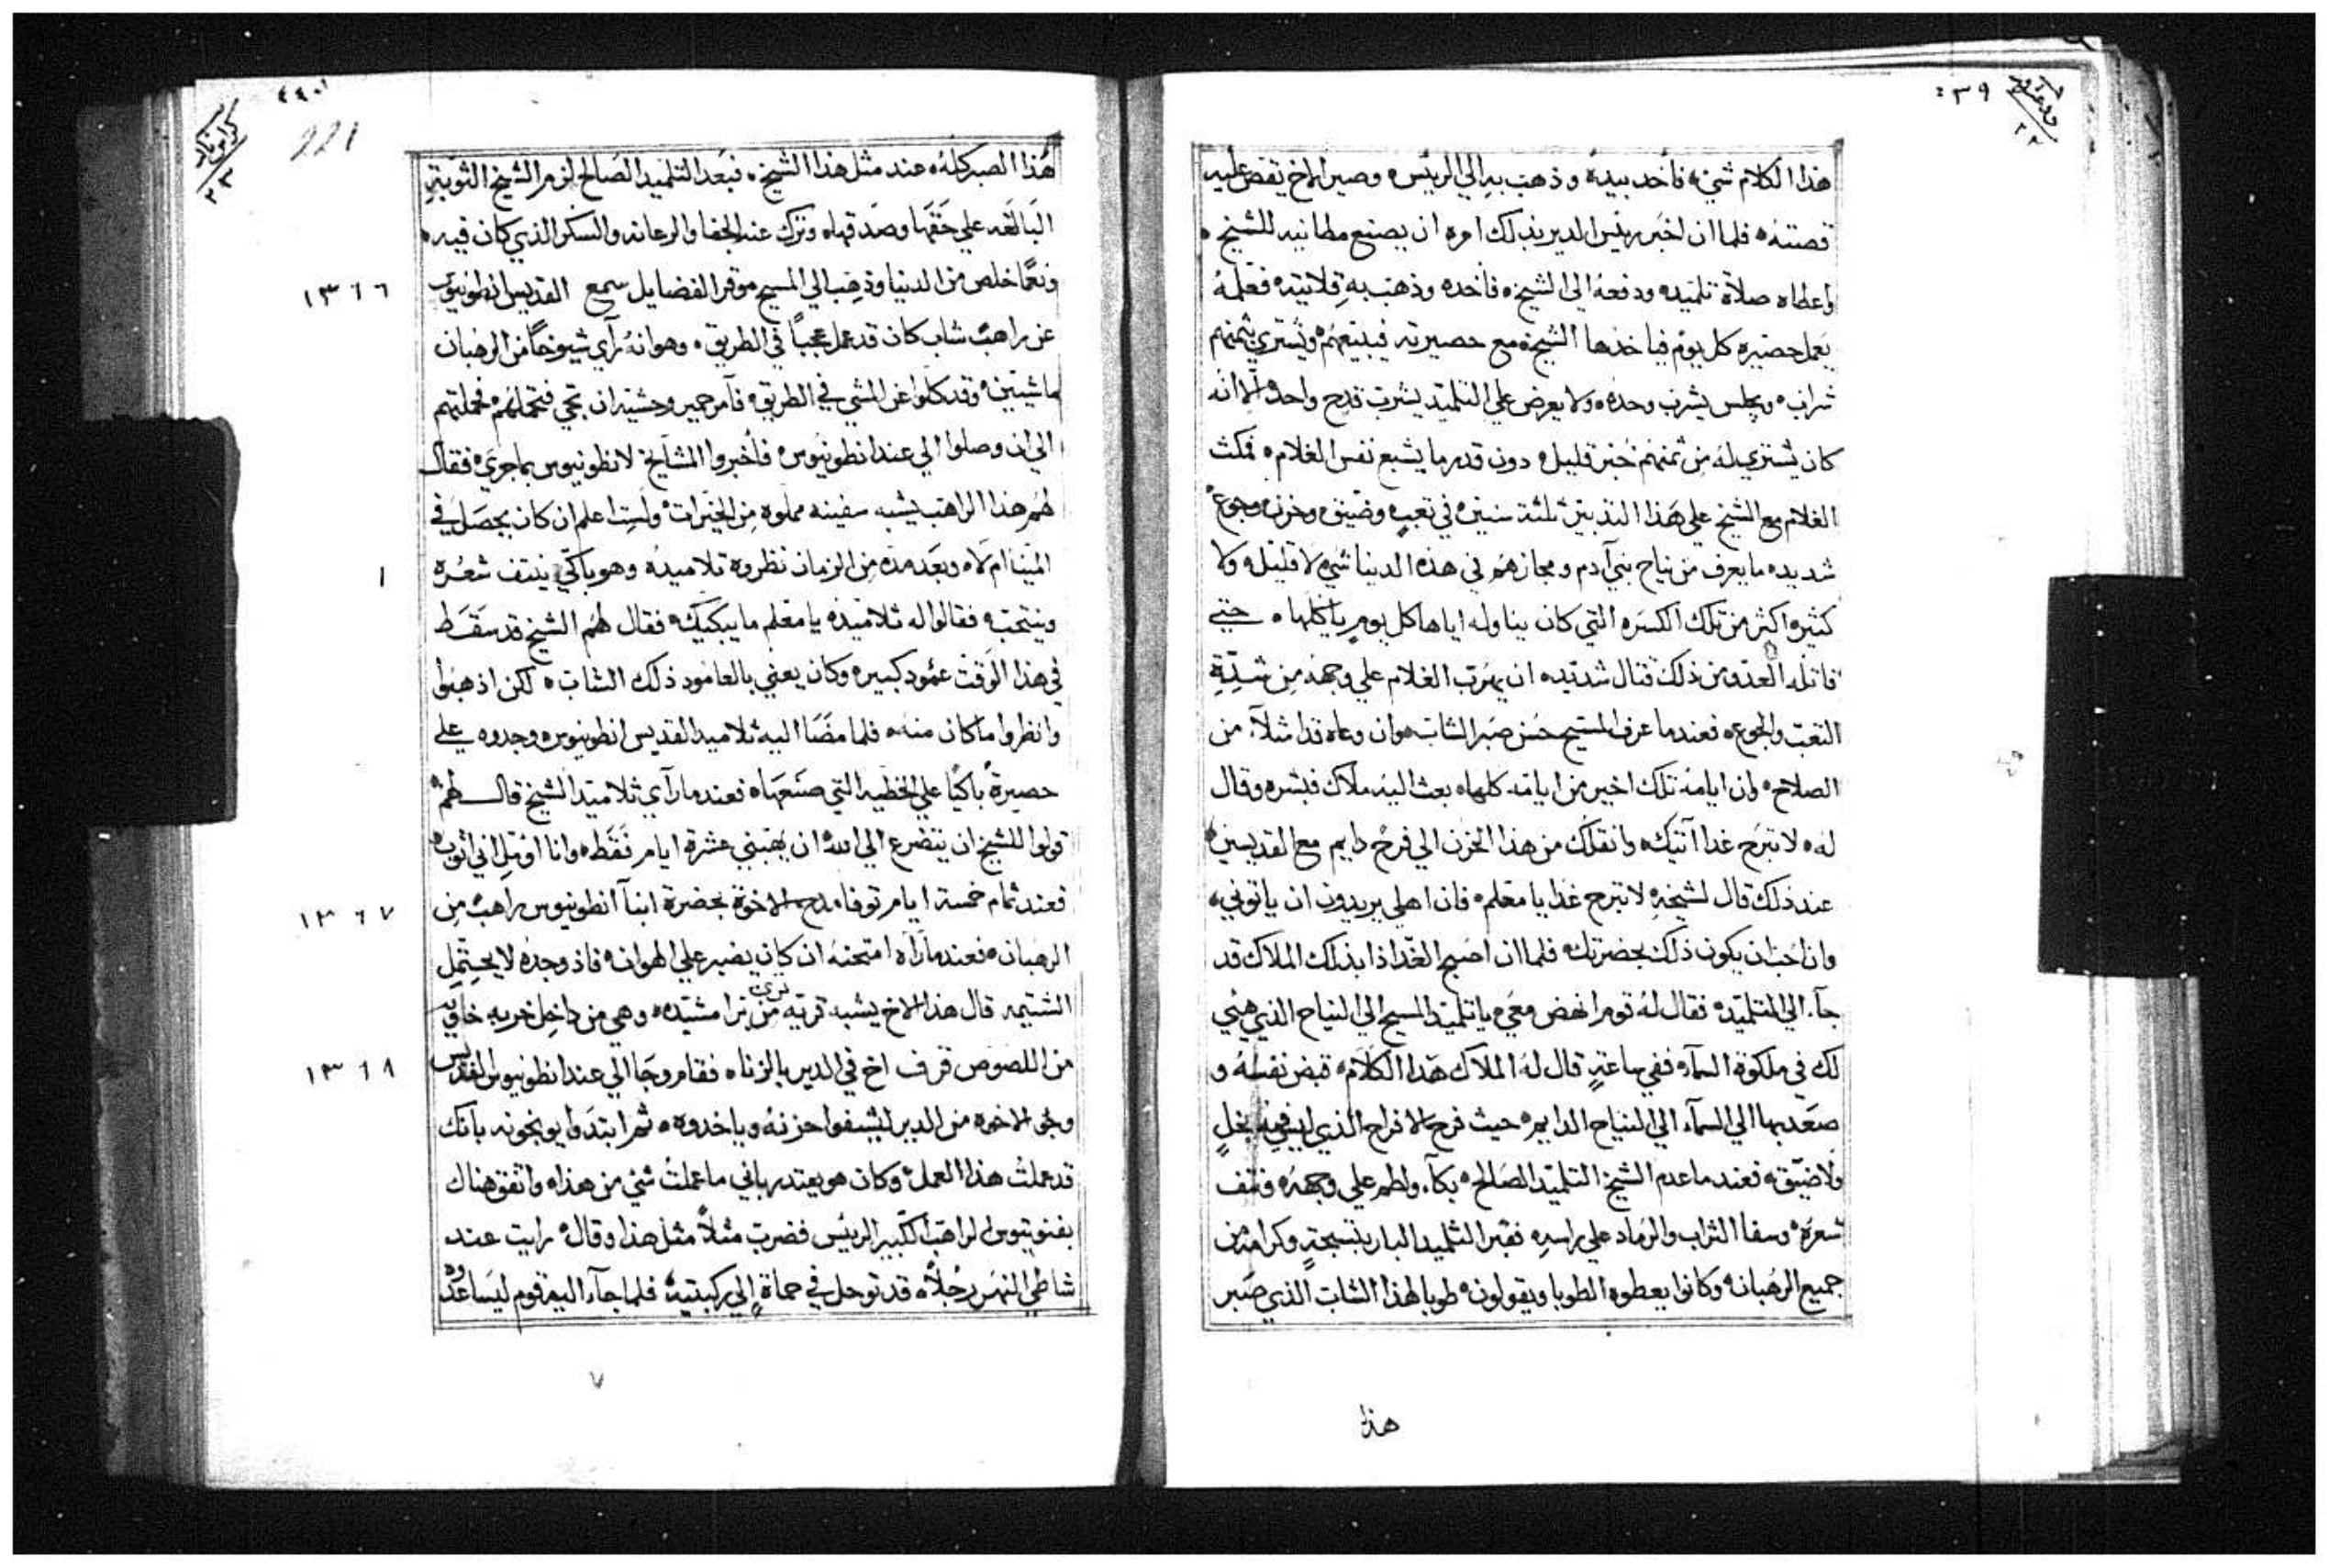 ٤٣٩
هذا الكلام شيء فأخد بيده وذهب به الي الريس وصير الاخ يقص عليه
قصته فلما ان اخبر ريس الدير بذلك امره ان يصنع مطانيه للشيخ
واعطاه صلاة تلميده ودفعه الي الشيخ فأخده وذهب به قلايته فعلمه
يعمل حصيره كل يوم فياخدها الشيخ مع حصيرته فيبيعهم ويشتري بثمنهم
شراب ويجلس يشرب وحده ولا يعرض علي التلميد يشرب قدح واحد الا انه
كان يشتري له من ثمنهم خبز قليل دون قدر ما يشبع نفس الغلام فمكث
الغلام مع الشيخ علي هذا التدبير ثلثة سنين في تعب وضيق وحزن وجوع
شديد ما يعرف من نياح بني آدم ومجازهم في هذه الدينا شي لا قليل ولا
كثير اكثر من تلك الكسره التي كان يناوله اياها كل يوم ياكلها حتي
قاتله العدو من ذلك قتال شديد ان يهرب الغلام علي وجهه من شدة
التعب والجوع فعندما عرف المسيح حسن صبر الشاب وان وعاه قد امتلآ من
الصلاح وان ايامه تلك اخير من ايامه كلها بعث اليه ملاك فبشره وقال
له لا تبرح غدا آتيك وانقلك من هذا الحزن الي فرح دايم مع القديسين
عند ذلك قال لشيخه لا تبرح غدا يا معلم فان اهلي يريدون ان ياتوني
وانا احب ان يكون ذلك بحضرتك فلما ان اصبح الغد اذا بذلك الملاك قد
جآء الي التلميد فقال له قوم انهض معي يا تلميد المسيح الي النياح الذي هيي
لك في ملكوة السمآء ففي ساعة قال له الملاك هذا الكلام قبض نفسه و
صعد بها الي السمآء الي النياح الدايم حيث فرح الافراح الذي ليس فيه بخل
ولا ضيق فعندما عدم الشيخ التلميد الصالح بكآء ولطم علي وجهه ونتف
شعره وسفا التراب والرماد علي راسه فقبر التلميد البار بتسبحة وكرامة من
جميع الرهبان وكانوا يعطوه الطوبا ويقولون طوبا لهذا الشاب الذي صبر
هذا
٤٤٠
221
هذا الصبر كله عند مثل هذا الشيخ فبعد التلميد الصالح لزم الشيخ التوبة
البالغه علي حقها وصدقها وترك عنه الجفا والرعانه والسكر الذي كان فيه
ونعما خلص من الدنيا وذهب الي المسيح موقر الفضايل سمع القديس انطونيوس
١٣٦٦
عن راهب شاب كان قد عمل عجباً في الطريق وهو انه رآي شيوخاً من الرهبان
ماشيين وقد كلوا عن المشي في الطريق فآمر حمير وحشيه ان تجي فتحملهم فحملتهم
الي ان وصلوا الي عند انطونيوس فأخبروا المشايخ لانطونيوس بما جري فقال
لهم هذا الراهب يشبه سفينه مملوة من الخيرات ولست اعلم ان كان يحصل في
المينا ام لا وبعد مدة من الزمان نظروه تلاميده وهو باكي ينتف شعره
١
وينتحب فقالوا له تلاميده يا معلم ما يبكيك فقال لهم الشيخ قد سقط
في هذا الوقت عمود كبير وكان يعني بالعامود ذلك الشاب لكن اذهبوا
وانظروا ما كان منه فلما مضا اليه تلاميد القديس انطونيوس وجدوه علي
حصيرة باكيا علي الخطيه التي صنعها فعندما رآي تلاميد الشيخ قال لهم
قولوا للشيخ ان يتضرع الي الله ان يهبني عشرة ايام فقط وانا اومل اني اتوب
فعند تمام خمسة ايام توفا مدح الاخوة بحضرة ابنآ انطونيوس راهب من
١٣٦٧
الرهبان فعندما رآه امتحنه ان كان يصبر علي الهوان فاذ وجده لا يحتمل
الشتيمه قال هذا الاخ يشبه قريه من برا مشيده وهي من داخل خربه خاويه
من اللصوص قرف اخ في الدير بالزناه فقام وجا الي عند انطونيوس القديس
١٣٦٨
وجي الاخوه من الدير ليشفوا حزنه وياخدوه ثم ابتدوا يوبخونه بانك
قد عملت هذا العمل وكان هو يعتدر باني ما عملت شي من هذا واتفق هناك
بفنوتيوس الراهب الكبير الريس فضرب مثلاً مثل هذا وقال رايت عند
شاطي النهر رجلاً قد توحل في حماة الي ركبتيه فلما جآء اليه قوم ليساعدوه
٧